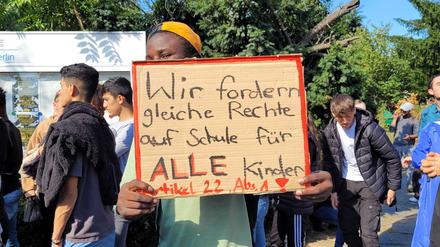 erlin
Wir fordern
gleiche Rechte
auf Schule für
ALLE Kinder
Artikel 22, Abs. 1